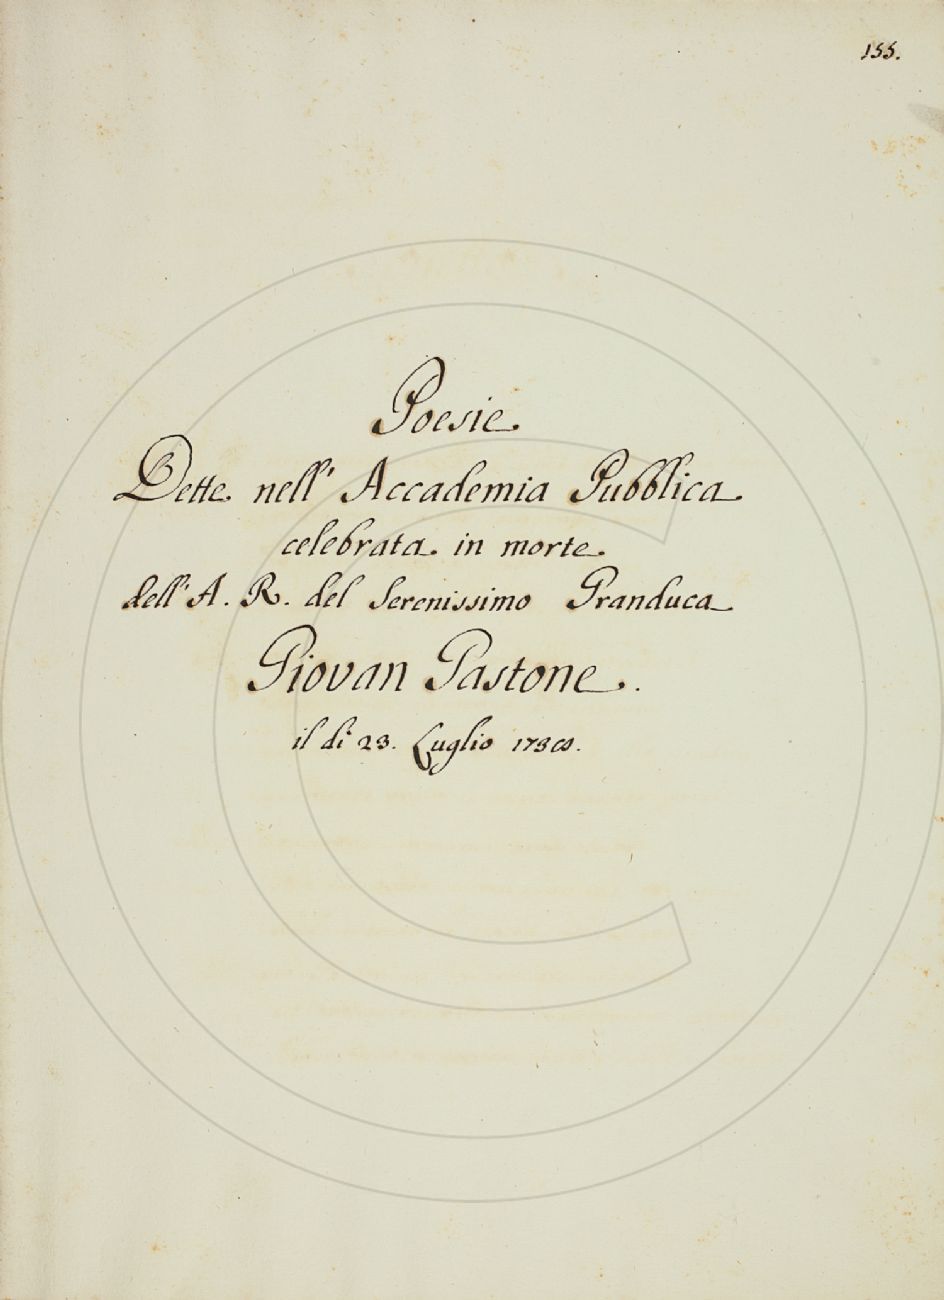 155.
Poesie
Dette nell' Accademia Pubblica
celebrata in morte
dell' A. R. del Serenissimo Granduca
Giovan Gastone.
il dì 23. Luglio